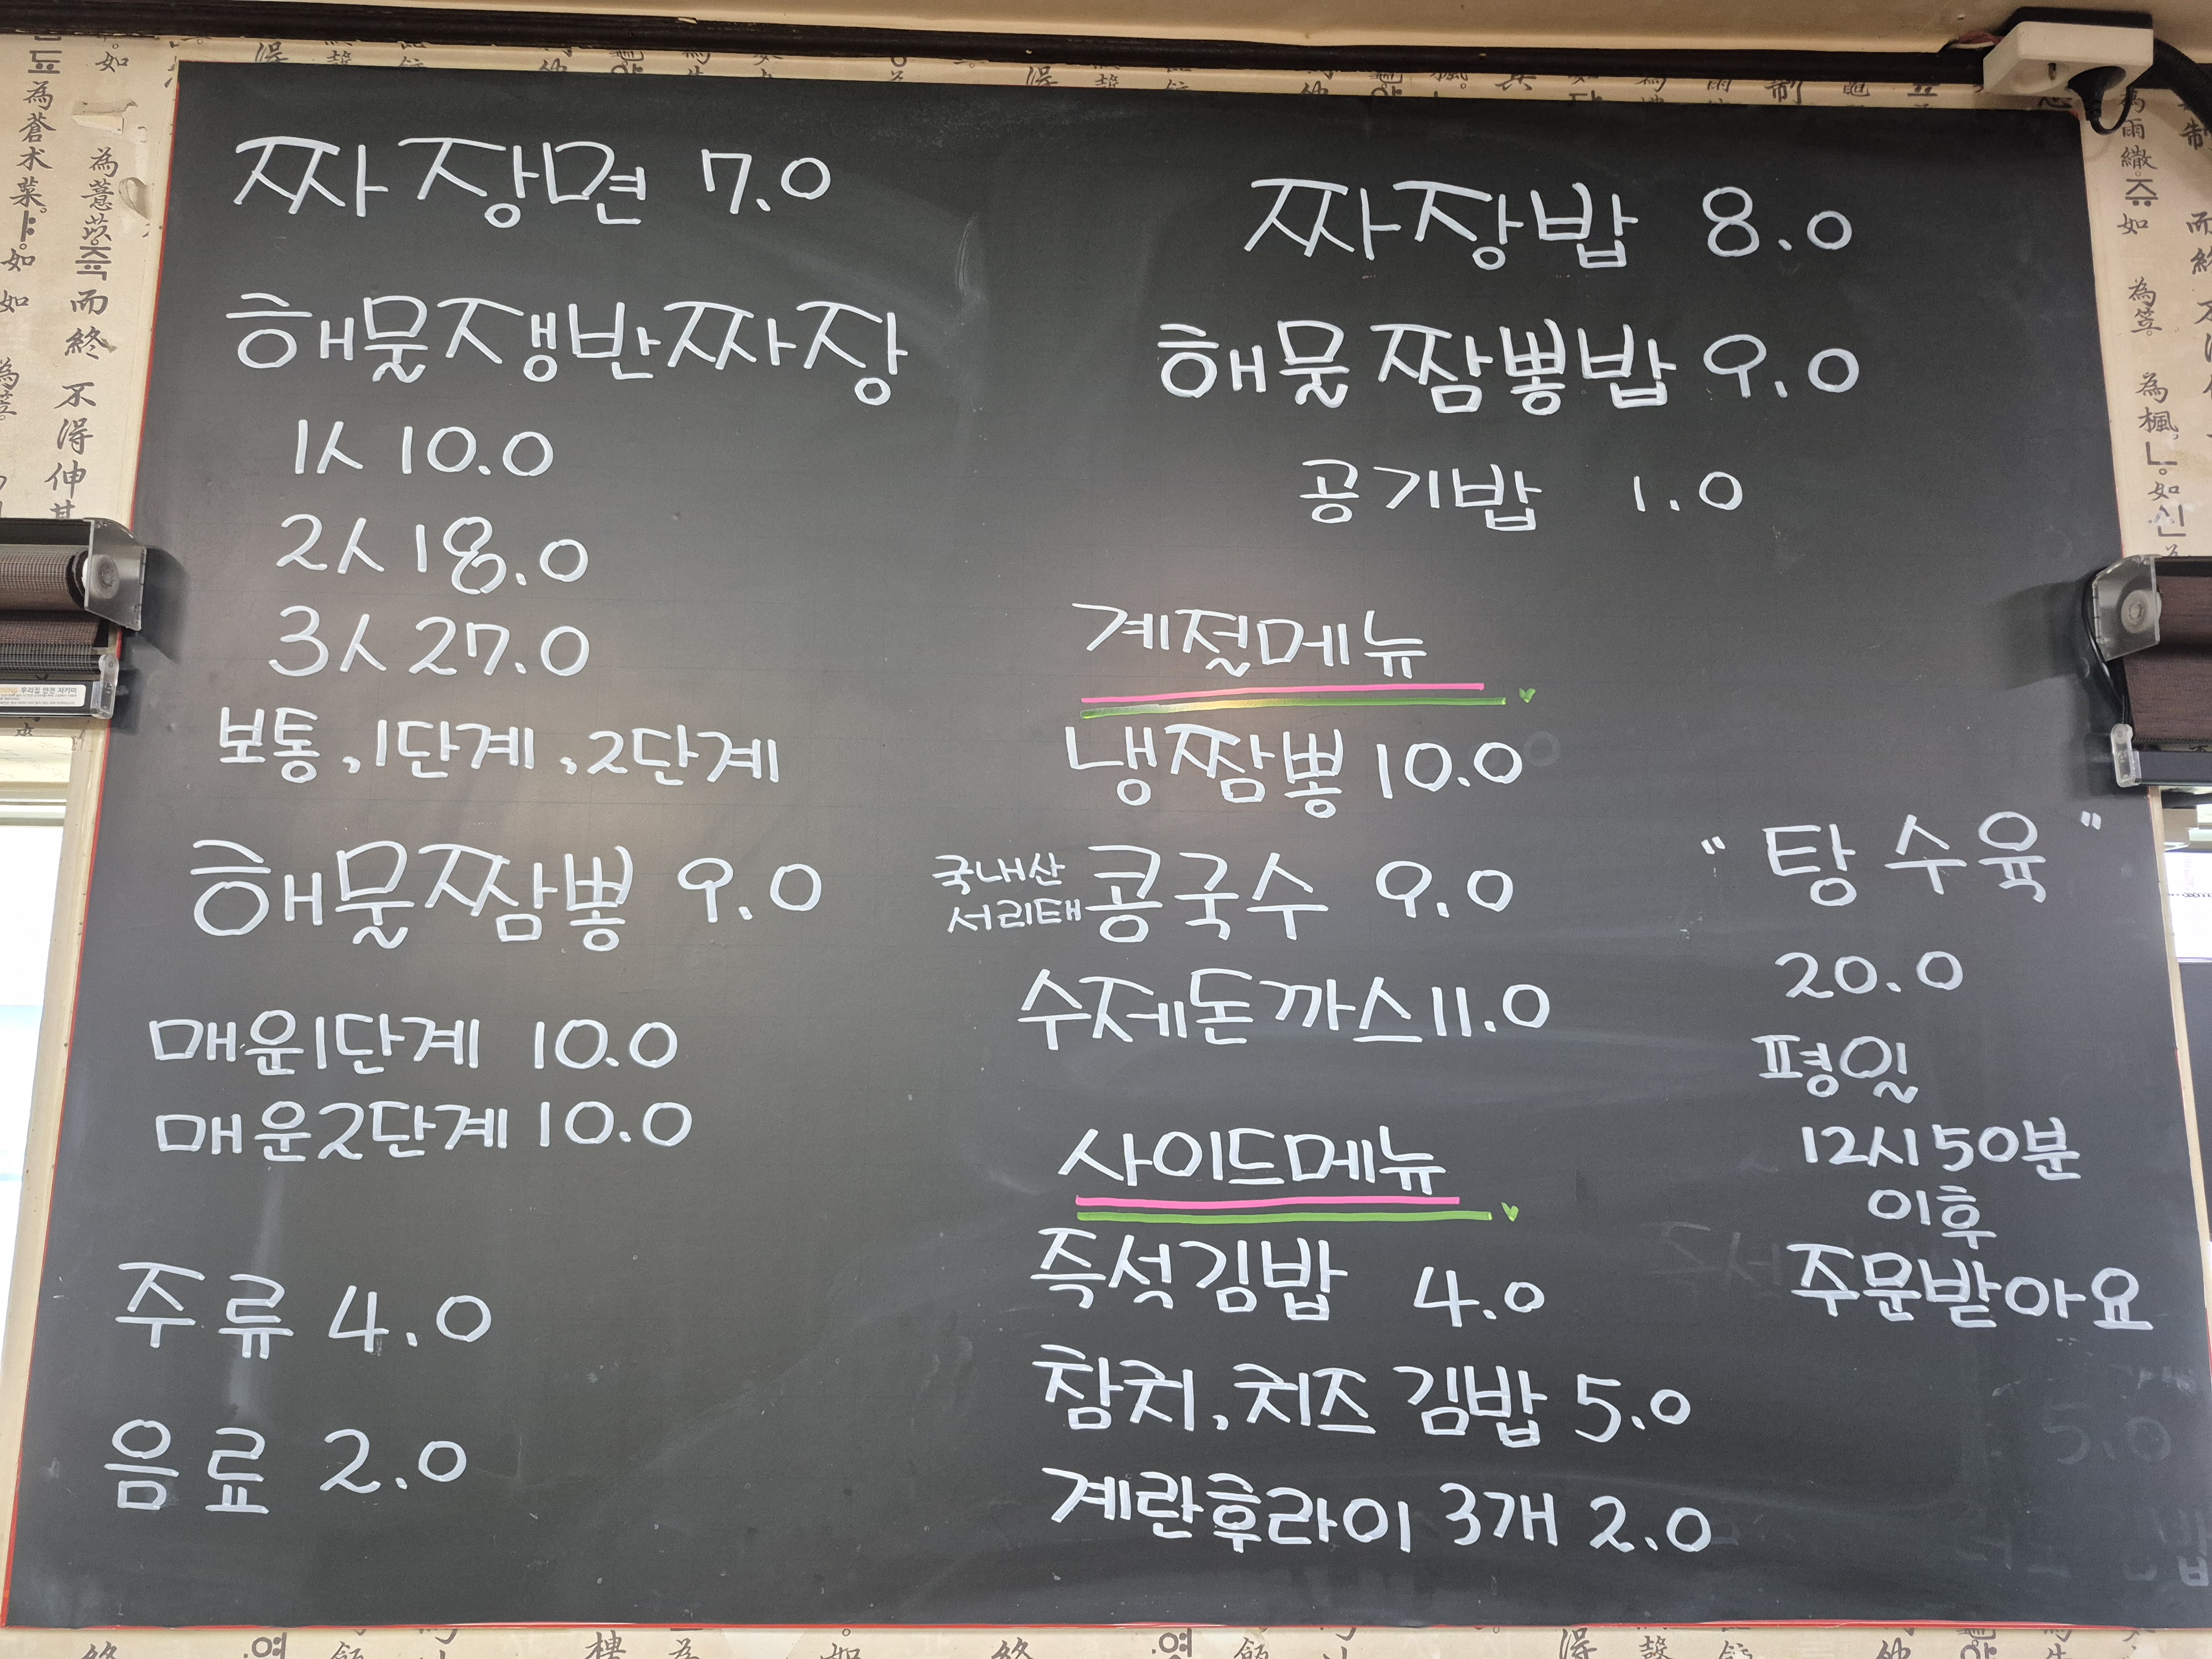 짜장면 7.0
해물쟁반짜장
1人 10.0
2人 18.0
3人 27.0
보통, 1단계, 2단계
해물짬뽕 9.0
매운1단계 10.0
매운2단계 10.0
주류 4.0
음료 2.0
짜장밥 8.0
해물짬뽕밥 9.0
공기밥 1.0
계절메뉴
냉짬뽕 10.0
국내산
서리태 콩국수 9.0
수제돈까스 11.0
사이드메뉴
즉석김밥 4.0
참치, 치즈 김밥 5.0
계란후라이 3개 2.0
"탕수육"
20.0
평일
12시 50분
이후
주문받아요